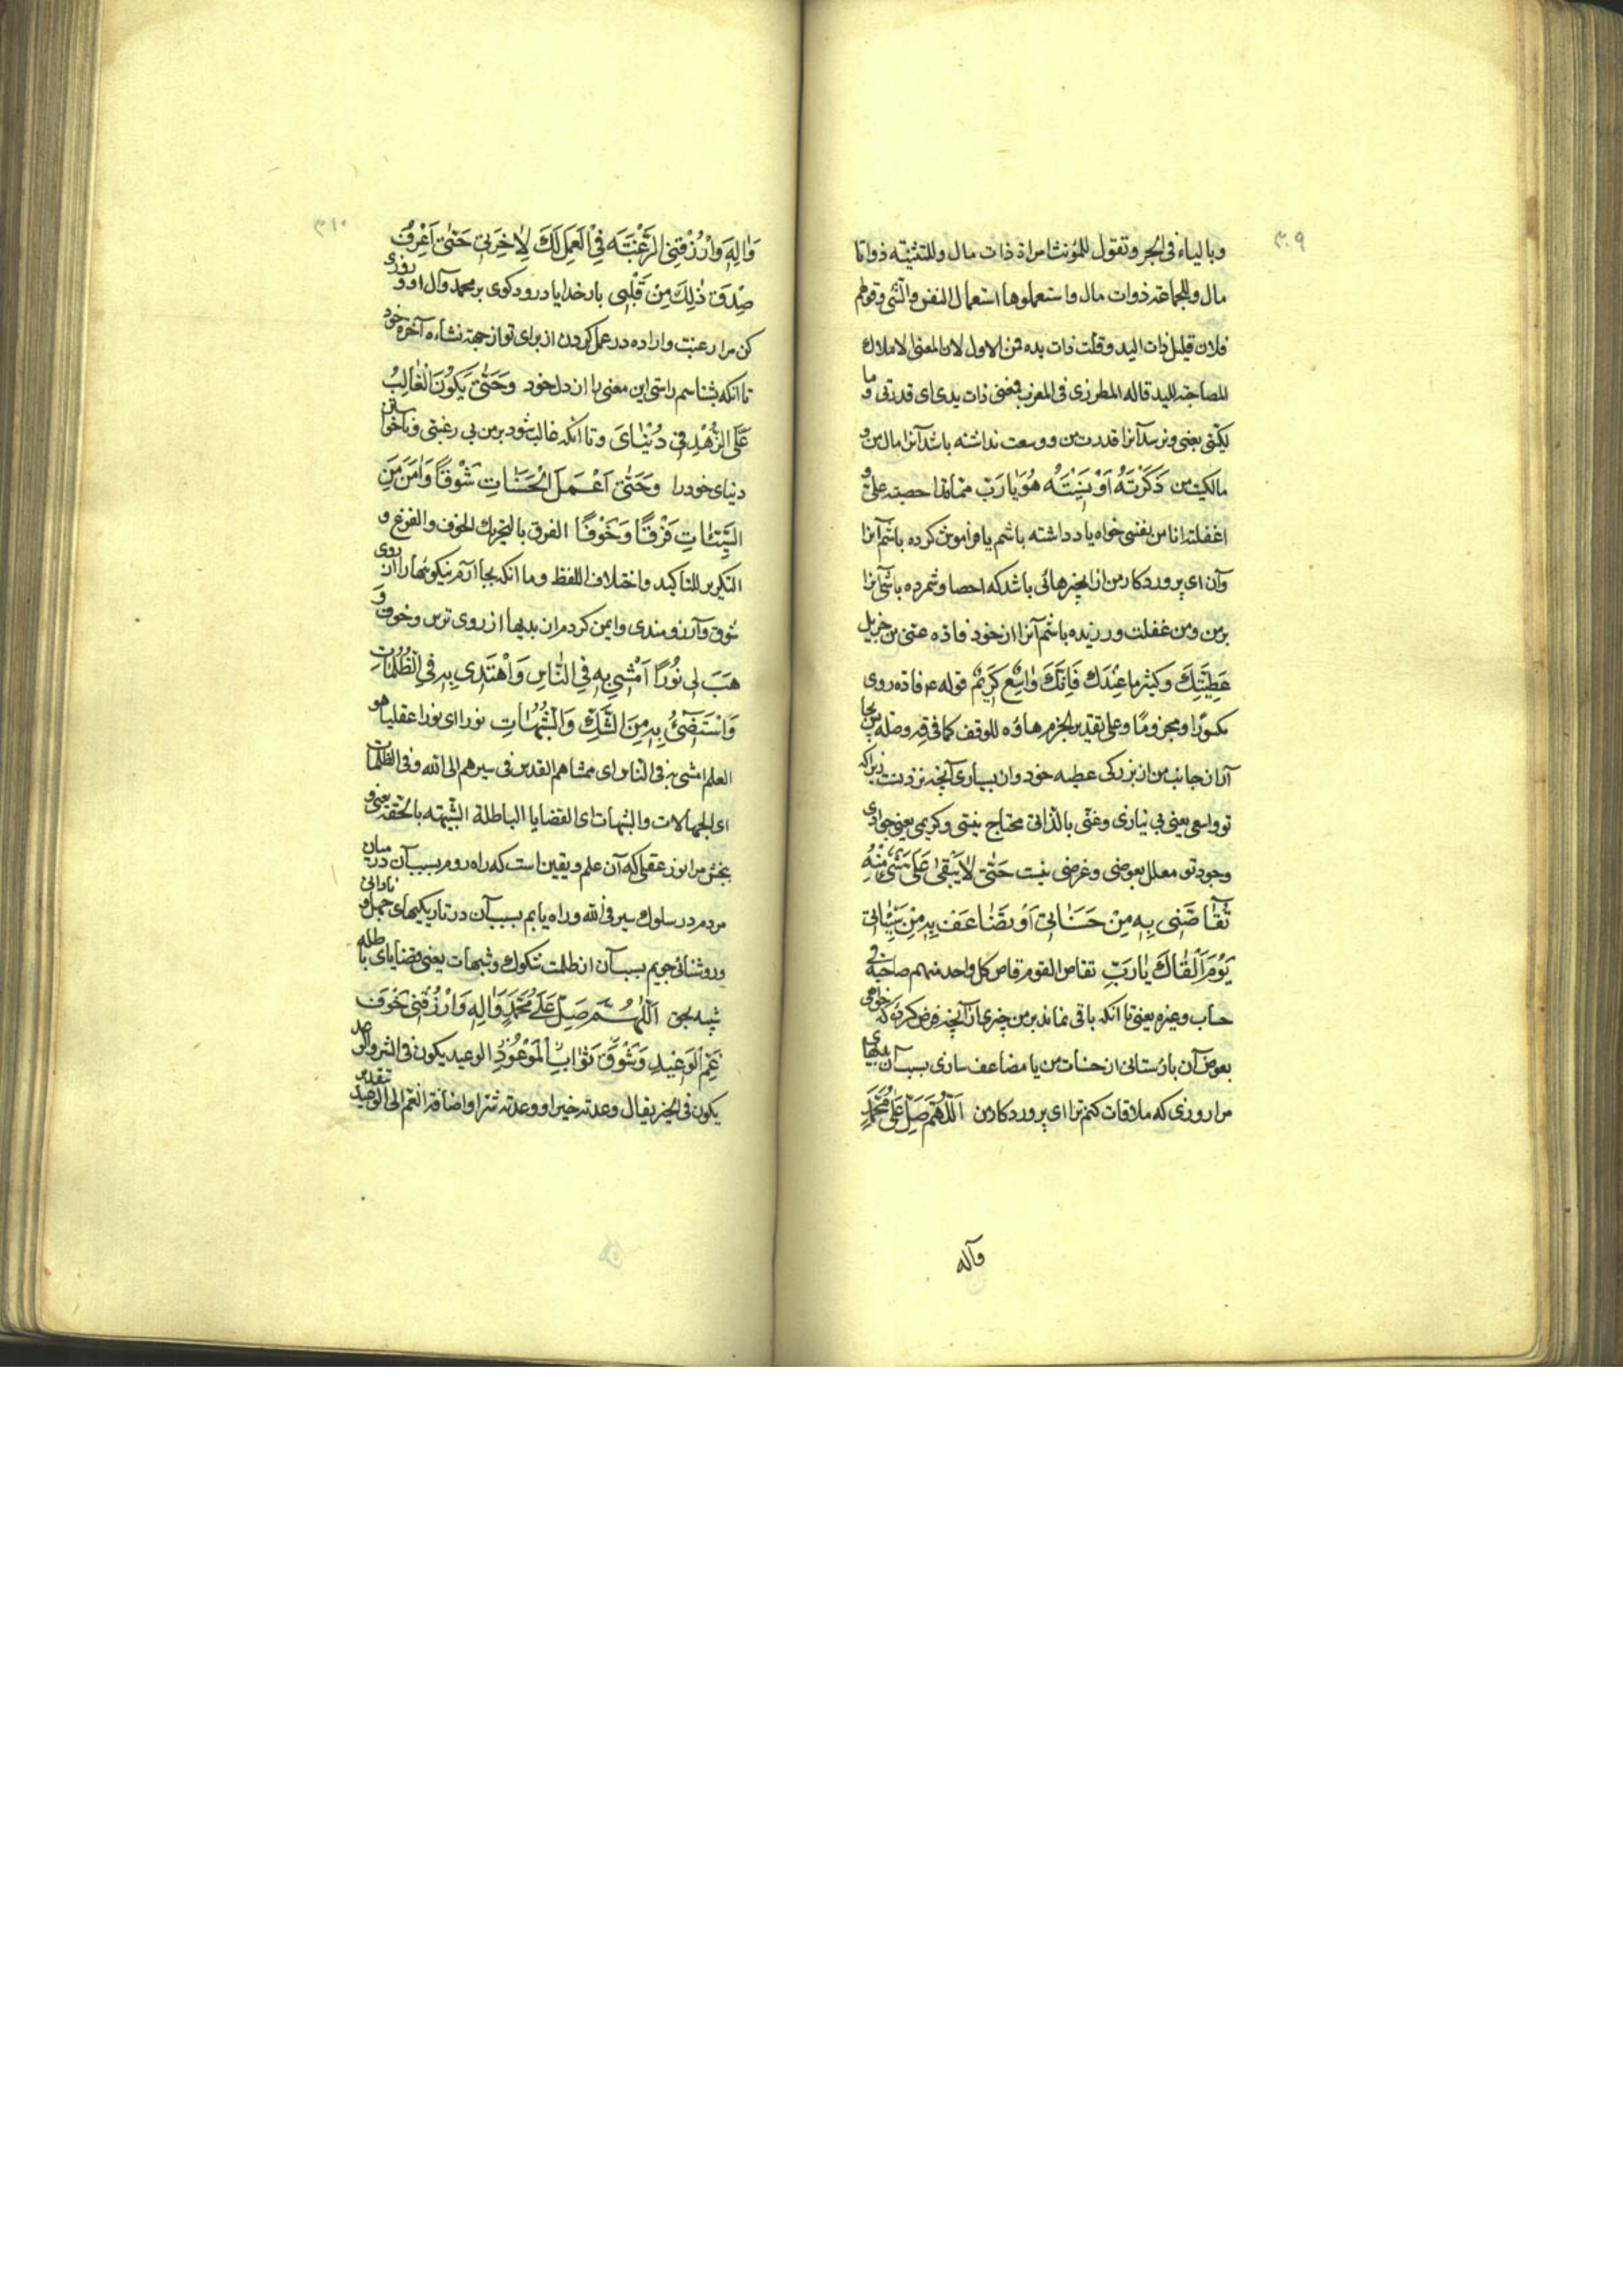 ٣٠٩
وبالياء فی الجر وتقول للمؤنث امراة ذات مال وللتثنیه ذواتا
مال وللجماعة ذوات مال واستعملوها استعمال النفس والشی وقولهم
فلان قلیل ذات الید وقلت ذات یده فمن الاول لان المعنی الاملاك
المصاحبة للید قاله المطرزی فی المغرب فمعنی ذات یدی ای قدرتی وما
لکتی یعنی ونرسد آنرا قدرت من ووسعت نداشته باشد آنرا مال من و
مالکیت من ذَكَرْتُهُ اَوْ نَسِیتُهُ هُوَ یا رَبِّ مما قد احصیته علی و
اغفلته انا من نفسی خواه یاد داشته باشم یا فراموش کرده باشم آنرا
وآن ای پروردکار من از آنچیزهائی باشد که احصا وشمرده باشی آنرا
بر من ومن غفلت ورزیده باشم آنرا از خود فاده عنی من جزیل
عَطِیَّتِكَ وَكَثیرِ ما عِنْدَكَ فَاِنَّكَ واسِعٌ كَریمٌ قوله ع فاده روی
مکسورا ومجزوما وعلی تقدیر الجزم هاؤه للوقف کما فی قه وصله پس بجا
آر از جانب من از بزرکی عطیه خود واز بسیاری آنچه نزد تست زیرا که
تو واسعی یعنی بی نیازی وغنی بالذاتی محتاج نیستی وکریمی یعنی جوادی
وجود تو معلل بعوضی وغرضی نیست حَتّی لا یَبْقی عَلَیَّ شَیْءٌ مِنْهُ
تُقاصُّنی بِهِ مِنْ حَسَناتی اَوْ تُضاعِفُ بِهِ مِنْ سَیِّئاتی
یَوْمَ اَلْقاكَ یا رَبِّ تقاص القوم قاص کل واحد منهم صاحبه فی
حساب وغیره یعنی تا آنکه باقی نماند بر من چیزی از آنچه فرض کرده که خواهی
بعوض آن بازستانی از حسنات من یا مضاعف سازی بسبب آن بدیهای
مرا روزی که ملاقات کنم ترا ای پروردکار من اَللّهُمَّ صَلِّ عَلی مُحَمَّدٍ
وآله
٣١٠
وَالِهِ وَارْزُقْنِی الرَّغْبَةَ فِی الْعَمَلِ لَكَ لِاخِرَتی حَتّی اَعْرِفَ
صِدْقَ ذلِكَ مِنْ قَلْبی بار خدایا درود کوی بر محمد وآل او وروزی
کن مرا رغبت واراده در عمل کردن از برای تو از جهة نشاءه آخرة خود
تا آنکه بشناسم راستی این معنی را از دل خود وَحَتّی یَكُونَ الْغالِبُ
عَلَیَّ الزُّهْدَ فی دُنْیایَ وتا آنکه غالب شود بر من بی رغبتی وناخواستن
دنیای خود را وَحَتّی اَعْمَلَ الْحَسَناتِ شَوْقًا وَامَنَ مِنَ
السَّیِّئاتِ فَرَقًا وَخَوْفًا الفرق بالتحریك الخوف والفزع و
التکریر للتاکید واختلاف اللفظ وما آنکه بجا آرم نیکوئیها را از روی
شوق وآرزومندی وایمن کردم از بدیها از روی ترس وخوف وَ
هَبْ لی نُورًا اَمْشی بِهِ فِی النّاسِ وَاَهْتَدی بِهِ فِی الظُّلُماتِ
وَاَسْتَضیءُ بِهِ مِنَ الشَّكِّ وَالشُّبُهاتِ نورا ای نورا عقلیا هو
العلم امشی به فی الناس ای ممشاهم القدس فی سیرهم الی الله وفی الظلمات
ای الجهالات والشبهات ای القضایا الباطلة الشبیهة بالحقة یعنی و
بخش مرا نور عقلی که آن علم ویقین است که راه روم بسبب آن در میان
مردم در سلوك سیر فی الله وراه یابم بسبب آن در تاریکیهای جهل ونادانی
وروشنائی جویم بسبب آن از ظلمت شکوك وشبهات یعنی قضایای باطله
شبیه بحق اَللّهُمَّ صَلِّ عَلی مُحَمَّدٍ وَالِهِ وَارْزُقْنی خَوْفَ
غَمِّ الْوَعیدِ وَشَوْقَ ثَوابِ الْمَوْعُودِ الوعید یکون فی الشر والوعد
یکون فی الخیر یقال وعدته خیرا ووعدته شرا واضافة الغم الی الوعید بتقدیر